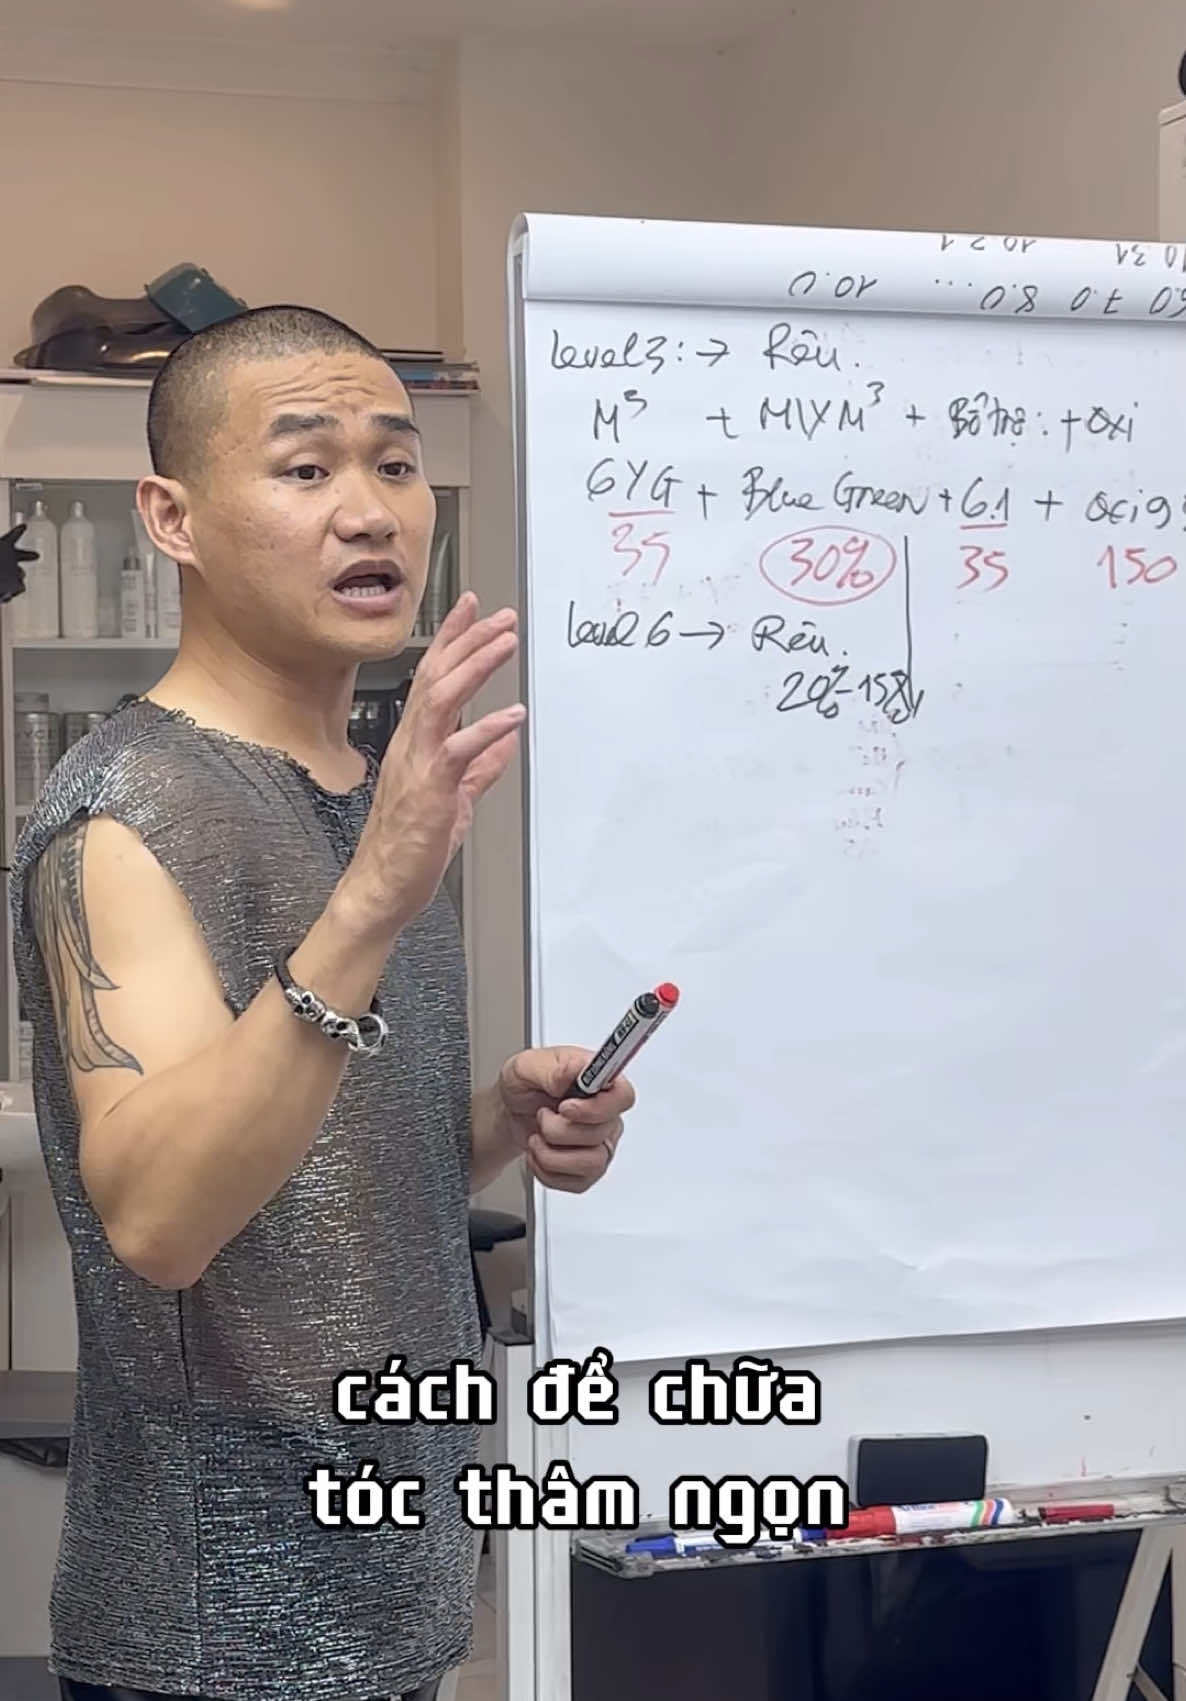 Level 3: → Rêu.
M³ + MIXM³ + Bổ trợ: + Oxi
6YG + Blue Green + 6.1 + Oxi 9
35 30% 35 150
Level 6 → Rêu.
20% - 15%
cách để chữa
tóc thâm ngọn